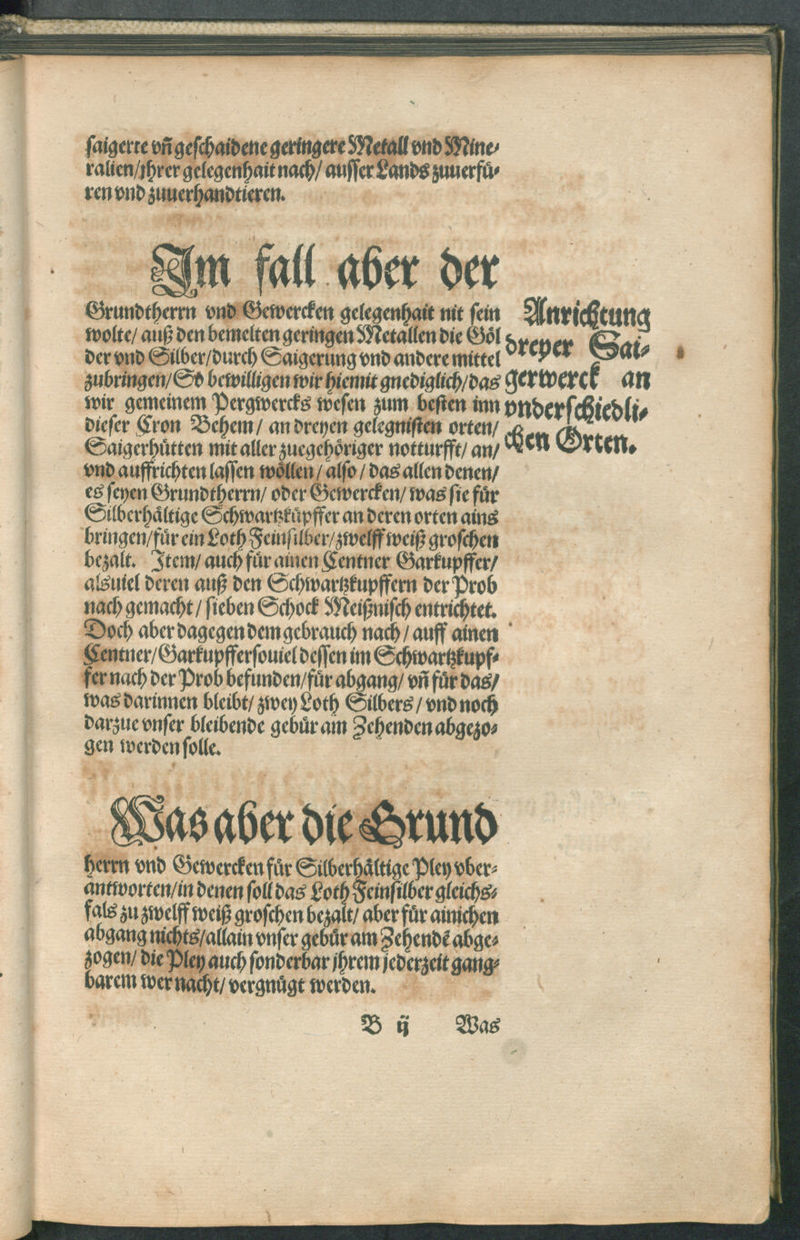 saigerte vñ geschaidene geringere Metall vnd Mine⸗
ralien/jhrer gelegenhait nach/ ausser Lands zuuerfü⸗
ren vnd zuuerhandtieren.
Im fall aber der
Grundtherrn vnd Gewercken gelegenhait nit sein
wolte/ auß den bemelten geringen Metallen die Göl
der vnd Silber/durch Saigerung vnd andere mittel
zubringen/So bewilligen wir hiemit gnediglich/das
wir gemeinem Pergwercks wesen zum besten inn
dieser Cron Behem/ an dreyen gelegnisten orten/
Saigerhütten mit aller zuegehöriger notturfft/ an/
vnd auffrichten lassen wöllen/ also/ das allen denen/
es seyen Grundtherrn/ oder Gewercken/ was sie für
Silberhältige Schwartzküpffer an deren orten ains
bringen/für ein Loth Feinsilber/zwelff weiß groschen
bezalt. Item/ auch für ainen Centner Garkupffer/
alsuiel deren auß den Schwartzkupffern der Prob
nach gemacht/ sieben Schock Meißnisch entrichtet.
Doch aber dagegen dem gebrauch nach/ auff ainen
Centner/Garkupffer souiel dessen im Schwartzkupf⸗
fer nach der Prob befunden/für abgang/ vñ für das/
was darinnen bleibt/ zwey Loth Silbers/ vnd noch
darzue vnser bleibende gebür am Zehenden abgezo⸗
gen werden solle.
Anrichtung
dreyer Sai⸗
gerwerck an
vnderschiedli⸗
chen Orten.
Was aber die Grund
herrn vnd Gewercken für Silberhältige Pley vber⸗
antworten/in denen soll das Loth Feinsilber gleichs⸗
fals zu zwelff weiß groschen bezalt/ aber für ainichen
abgang nichts/allain vnser gebür am Zehendẽ abge⸗
zogen/ die Pley auch sonderbar jhrem jederzeit gang⸗
barem wer nacht/ vergnügt werden.
B ij Was